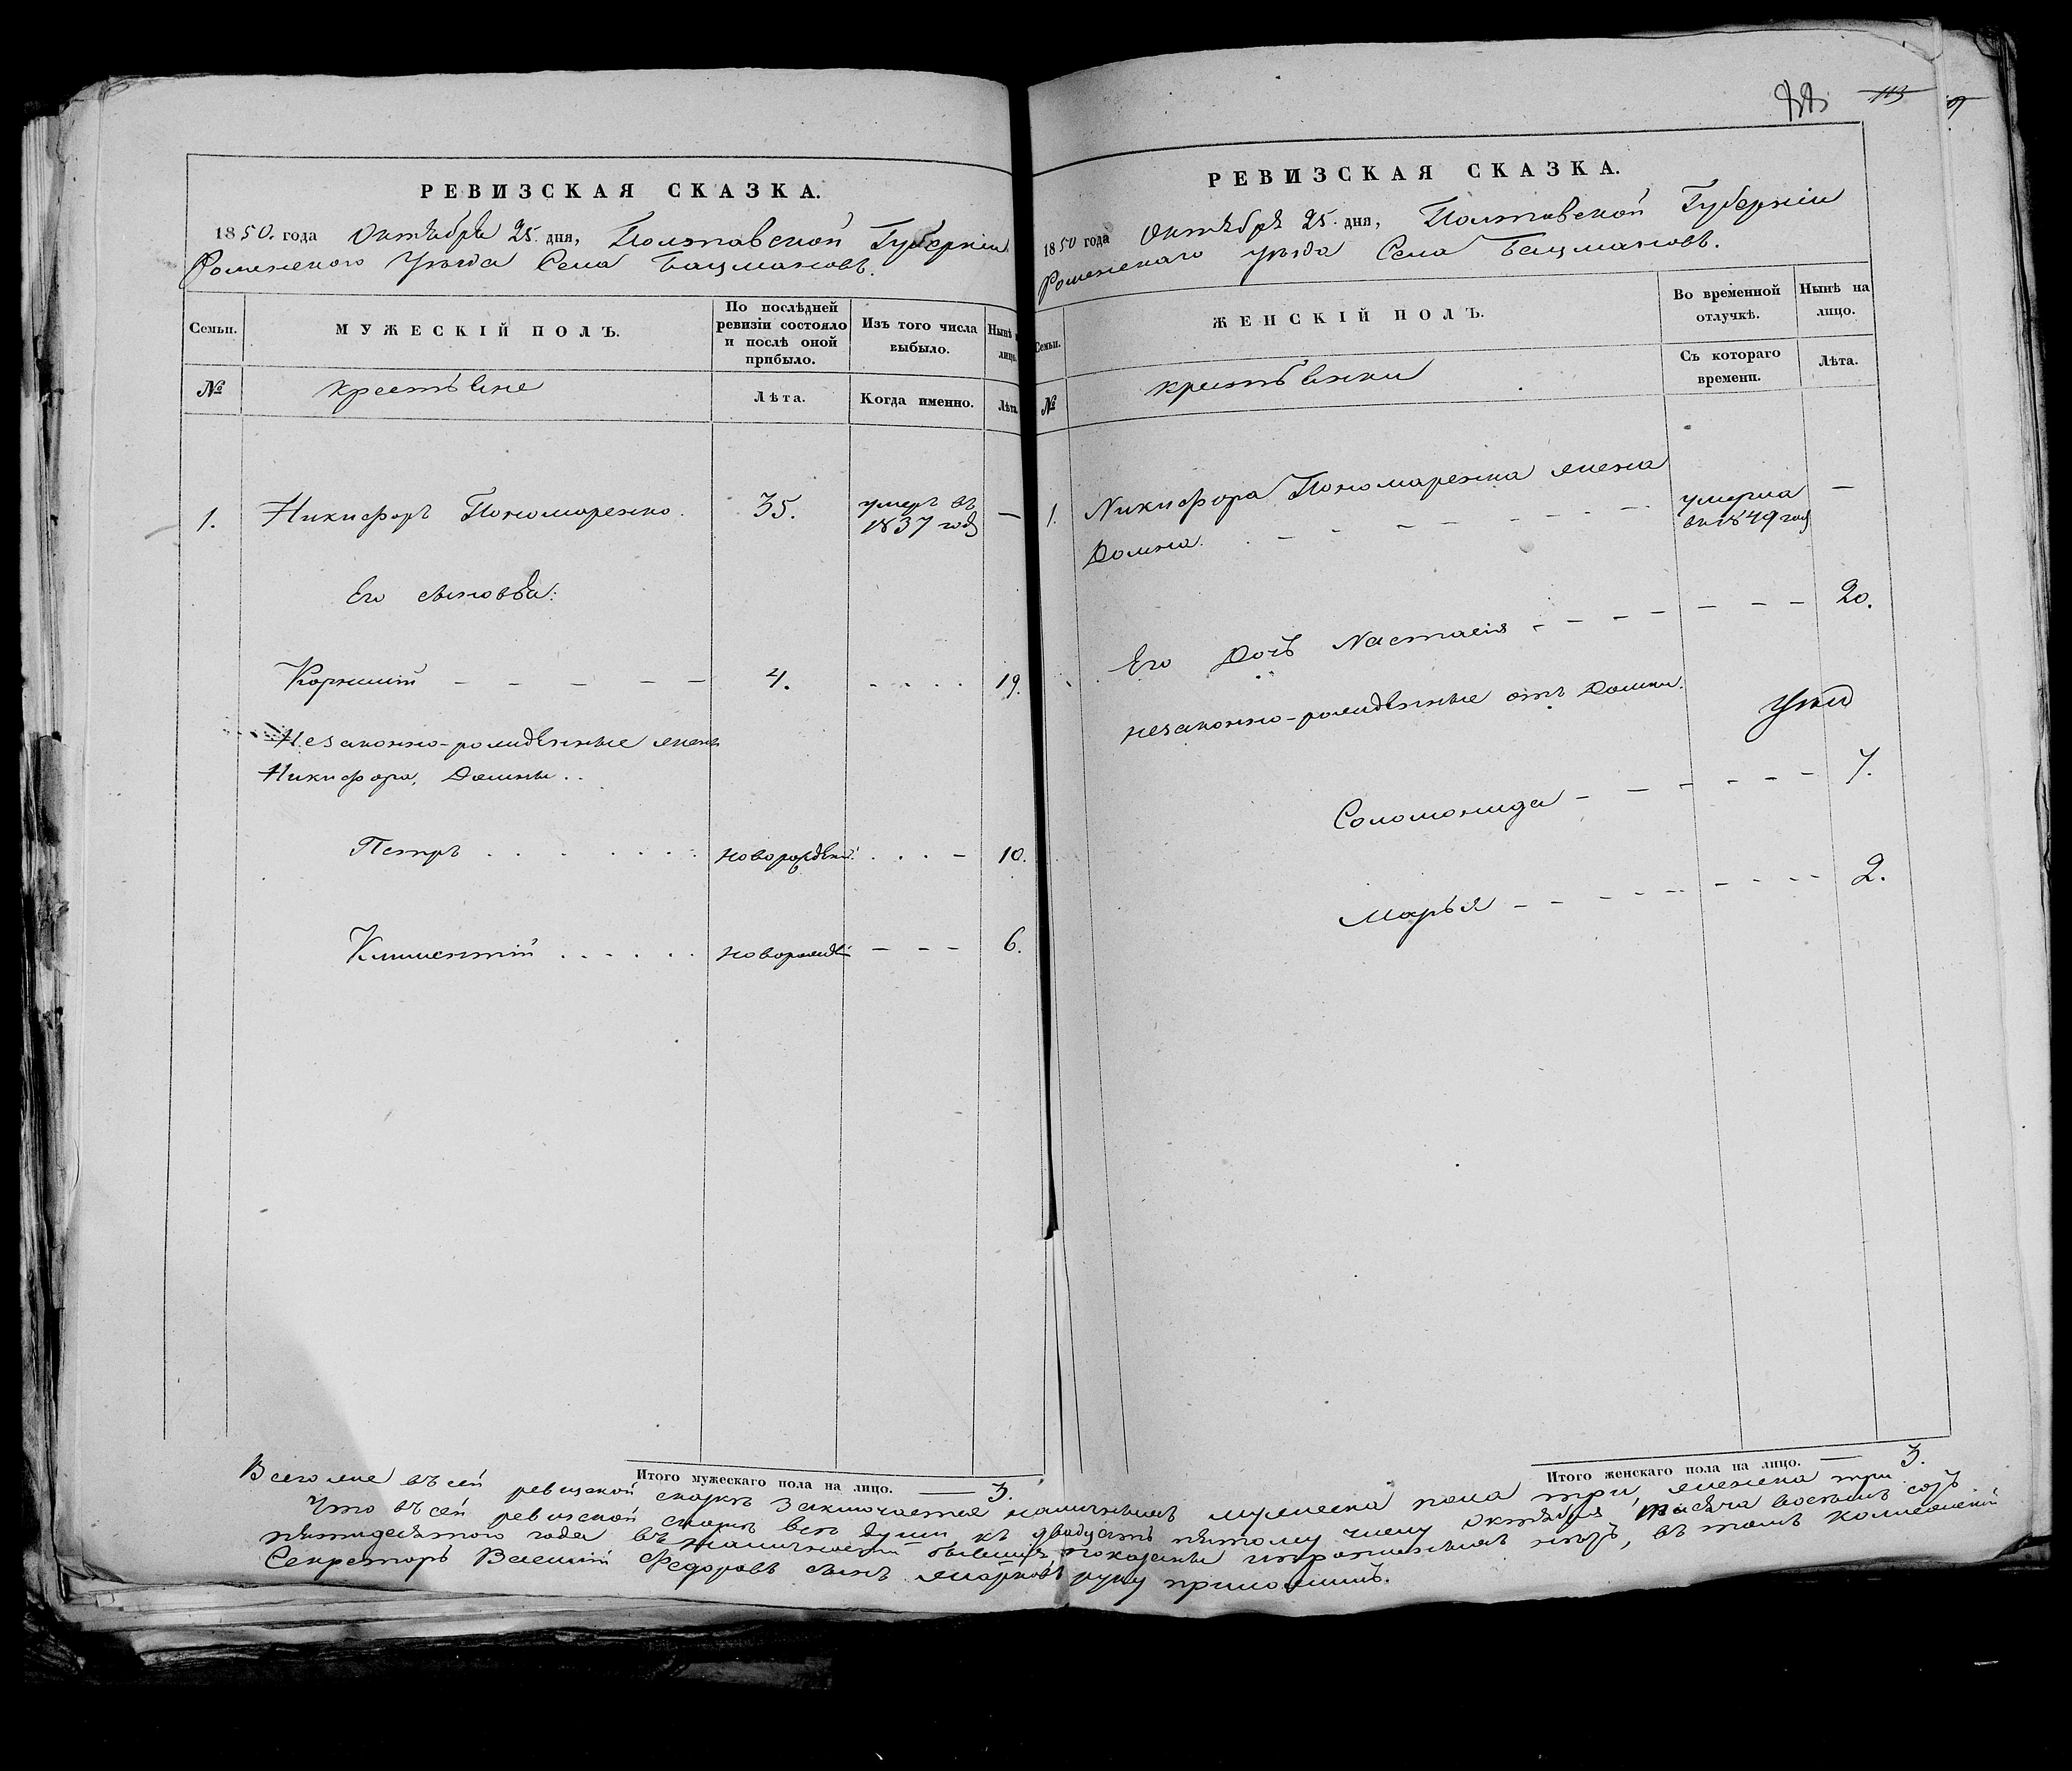 РЕВИЗСКАЯ СКАЗКА.
1850. года Октября 25. дня, Полтавской Губерніи
Роменского Уѣзда Села Бацмановъ.
Семьи.
МУЖЕСКІЙ ПОЛЪ.
По послѣдней ревизіи состояло и послѣ оной прибыло.
Изъ того числа выбыло.
Нынѣ
лицо.
№
крестьяне
Лѣта.
Когда именно.
Лѣта.
1. Никифоръ Пономаренко. 35. умеръ въ 1837 год —
Его сыновья:
Корнилій — — — — — 4. . . . . 19.
Незаконно-рожденные жены
Никифора, Домны . .
Петръ . . . . . . . новорожден. . . . — 10.
Климентій . . . . . . новорожд — — — 6.
Итого мужескаго пола на лицо. — 3.
88 113
РЕВИЗСКАЯ СКАЗКА.
1850 года Октября 25. дня, Полтавской Губерніи
Роменскаго уѣзда Села Бацмановъ.
Семьи.
ЖЕНСКІЙ ПОЛЪ.
Во временной отлучкѣ.
Нынѣ на лицо.
№
крестьянки
Съ котораго времени.
Лѣта.
1. Никифора Пономаренка жена
Домна. . — — — — — — — умерла въ 1849 год —
Его Дочь Настасія — — — — — — — 20.
незаконно-рожденные отъ Домны.
Соломонида — — — — — — 7.
Марья — — — — — — — — — 2.
Итого женскаго пола на лицо. — 3.
Всего же въ сей ревизской сказкѣ заключается наличныхъ мужеска пола три женска три
Что въ сей ревизской сказкѣ всѣ души къ двадцать пятому числу Октября тысяча восемь сотъ
пятидесятого года въ наличности бывшія, показаны и прописныхъ нѣтъ, въ томъ Коллежскій
Секретарь Василій Федоровъ сынъ руку приложилъ.